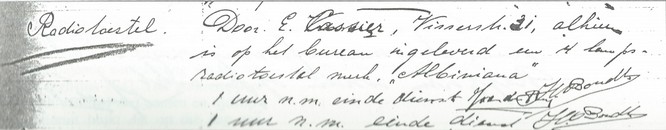 Radiotoestel. Door E. Cassier, Visserstr. 21, alhier
is op het bureau ingeleverd een 4 lamps-
radiotoestel merk, "Albiniana"
1 uur n.m. einde dienst
1 uur n.m. einde dienst